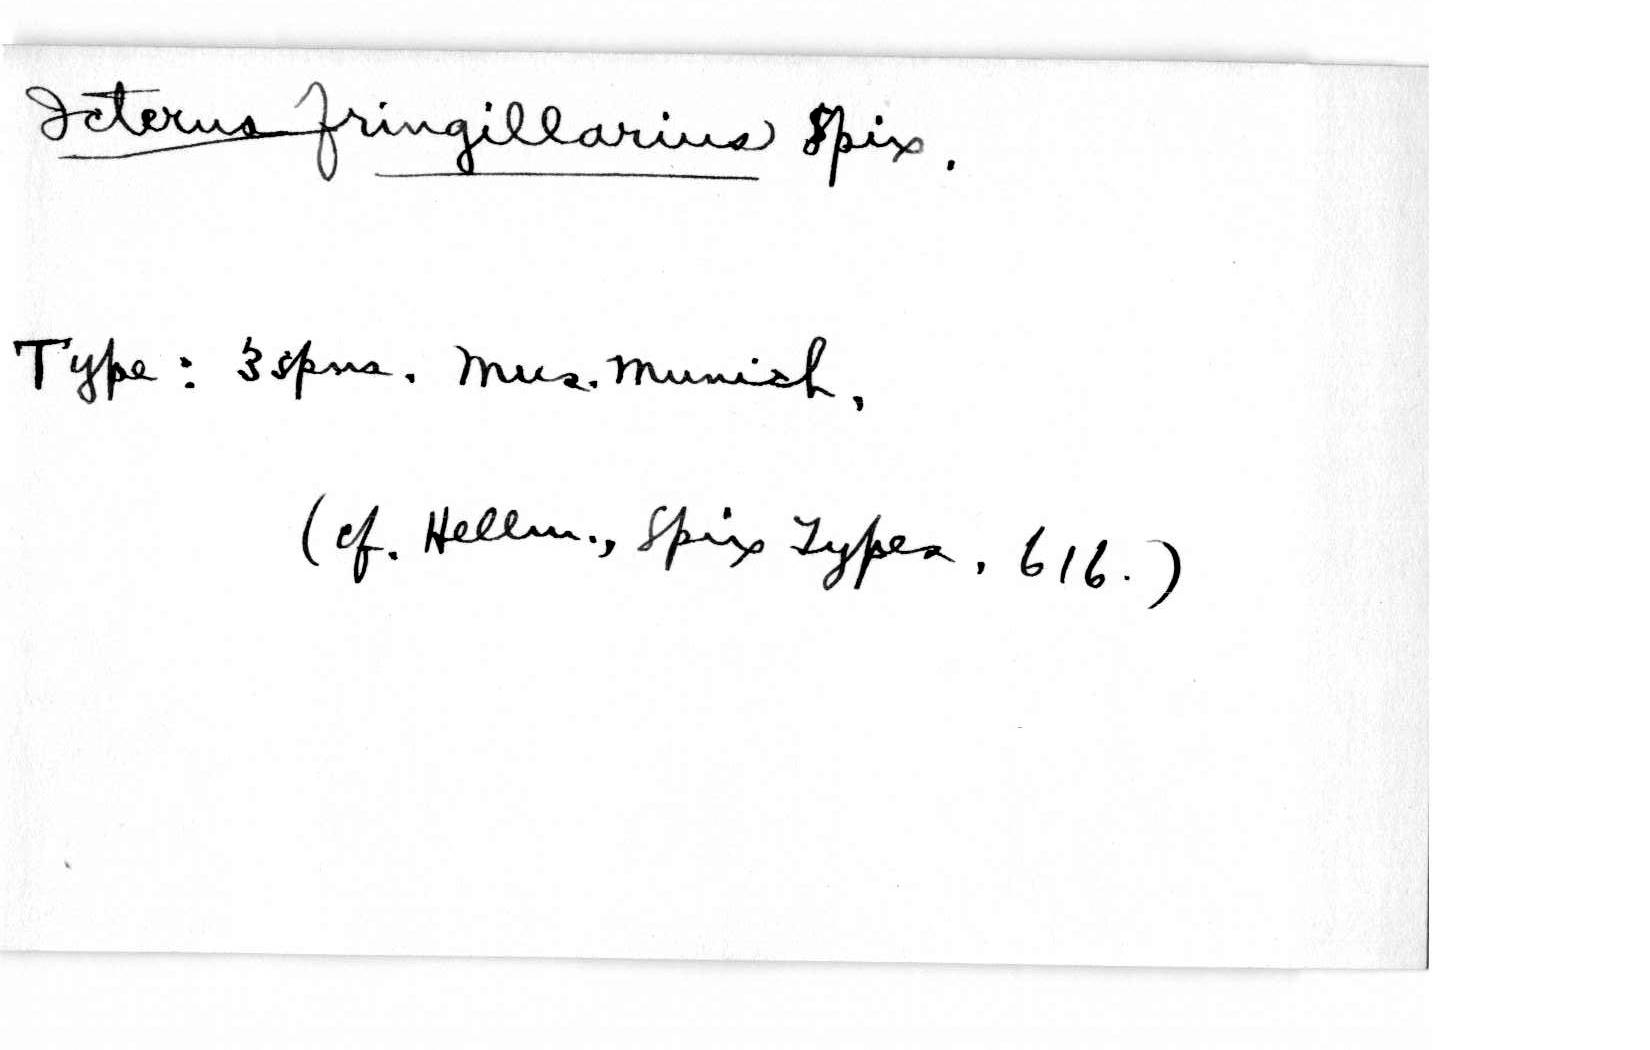 Icterus fringillarius Spix.
Type: 3 spns. Mus. Munich,
(cf. Hellm., Spix Types, 616.)